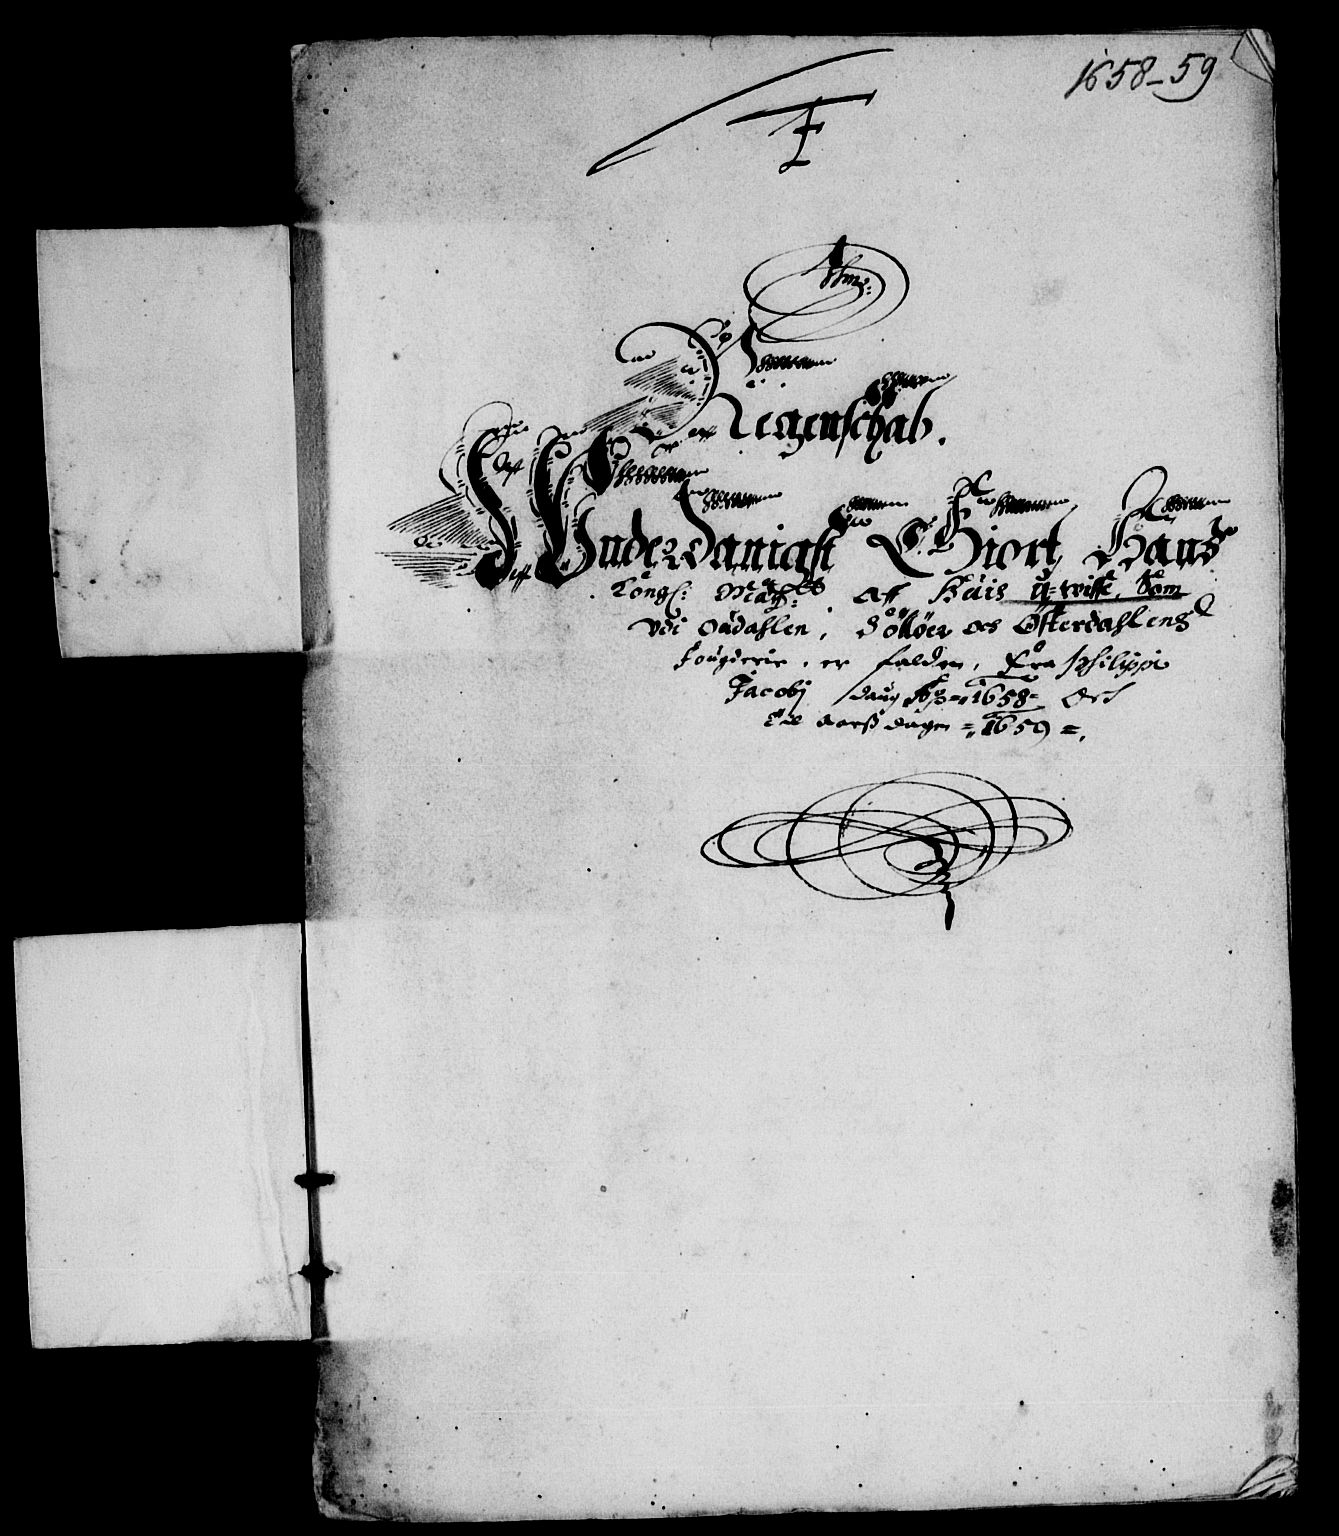 1658-59
F
Regenschab.
Underdanigst Giort Hans
Kongl: May:tt aff Huis U-wisse, Som
Vdi Oudahlen, Soløer och Østerdahlens
fougderie, er falden, fra Philippi
Jacobj daug Ao 1658 Och
till aarss dagen 1659